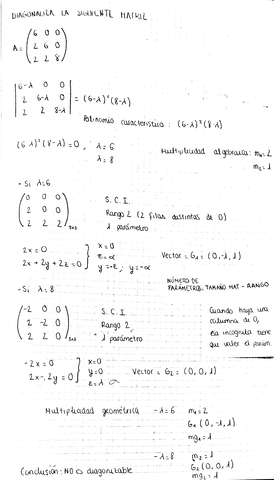 DIAGONALIZA LA SIGUIENTE MATRIZ
A = (6 0 0
2 6 0
2 2 8)
|6-λ 0 0
2 6-λ 0
2 2 8-λ| = (6-λ)²(8-λ)
Polinomio característico: (6-λ)²(8-λ)
(6-λ)²(8-λ)=0, λ=6
λ=8
Multiplicidad algebraica: m₁=2
m₂=1
• Si λ=6
(0 0 0
2 0 0
2 2 2)3x3
S.C.I.
Rango 2 (2 filas distintas de 0)
1 parámetro
2x=0
2x+2y+2z=0
x=0
z=α
y=-z; y=-α
Vector = G₁ = (0,-1,1)
NÚMERO DE
PARÁMETROS: TAMAÑO MAT - RANGO
• Si λ=8
(-2 0 0
2 -2 0
2 2 0)3x3
S.C.I.
Rango 2,
1 parámetro
Cuando haya una
columna de 0,
esa incógnita tiene
que valer el parám.
-2x=0
2x-2y=0
x=0
y=0
z=λ α
Vector = G₂ = (0,0,1)
Multiplicidad geométrica
-λ=6 m₁=2
G₁(0,-1,1)
mg₁=1
-λ=8 m₂=1
G₂(0,0,1)
mg₂=1
Conclusión: NO es diagonizable